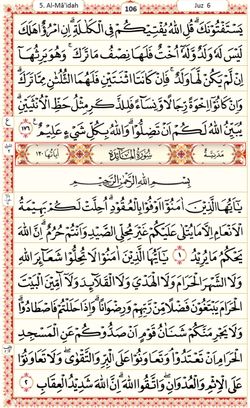 5. Al-Mâ'idah 106 Juz 6
يَسْتَفْتُوْنَكَ ۗ قُلِ اللّٰهُ يُفْتِيْكُمْ فِى الْكَلٰلَةِ ۗ اِنِ امْرُؤٌا هَلَكَ
لَيْسَ لَهٗ وَلَدٌ وَّلَهٗٓ اُخْتٌ فَلَهَا نِصْفُ مَا تَرَكَ ۚ وَهُوَ يَرِثُهَآ
اِنْ لَّمْ يَكُنْ لَّهَا وَلَدٌ ۗ فَاِنْ كَانَتَا اثْنَتَيْنِ فَلَهُمَا الثُّلُثٰنِ مِمَّا تَرَكَ ۗ
وَاِنْ كَانُوْٓا اِخْوَةً رِّجَالًا وَّنِسَآءً فَلِلذَّكَرِ مِثْلُ حَظِّ الْاُنْثَيَيْنِ ۗ
يُبَيِّنُ اللّٰهُ لَكُمْ اَنْ تَضِلُّوْا ۗ وَاللّٰهُ بِكُلِّ شَيْءٍ عَلِيْمٌ ١٧٦
مَدَنِيَّةٌ سُوْرَةُ الْمَآئِدَةِ اٰيَاتُهَا ١٢٠
بِسْمِ اللّٰهِ الرَّحْمٰنِ الرَّحِيْمِ
يٰٓاَيُّهَا الَّذِيْنَ اٰمَنُوْٓا اَوْفُوْا بِالْعُقُوْدِ ۗ اُحِلَّتْ لَكُمْ بَهِيْمَةُ
الْاَنْعَامِ اِلَّا مَا يُتْلٰى عَلَيْكُمْ غَيْرَ مُحِلِّى الصَّيْدِ وَاَنْتُمْ حُرُمٌ ۗ اِنَّ اللّٰهَ
يَحْكُمُ مَا يُرِيْدُ ١ يٰٓاَيُّهَا الَّذِيْنَ اٰمَنُوْا لَا تُحِلُّوْا شَعَآئِرَ اللّٰهِ
وَلَا الشَّهْرَ الْحَرَامَ وَلَا الْهَدْيَ وَلَا الْقَلَآئِدَ وَلَآ اٰۤمِّيْنَ الْبَيْتَ
الْحَرَامَ يَبْتَغُوْنَ فَضْلًا مِّنْ رَّبِّهِمْ وَرِضْوَانًا ۗ وَاِذَا حَلَلْتُمْ فَاصْطَادُوْا ۗ
وَلَا يَجْرِمَنَّكُمْ شَنَاٰنُ قَوْمٍ اَنْ صَدُّوْكُمْ عَنِ الْمَسْجِدِ
الْحَرَامِ اَنْ تَعْتَدُوْا ۘ وَتَعَاوَنُوْا عَلَى الْبِرِّ وَالتَّقْوٰى ۖ وَلَا تَعَاوَنُوْا
عَلَى الْاِثْمِ وَالْعُدْوَانِ ۖ وَاتَّقُوا اللّٰهَ ۗ اِنَّ اللّٰهَ شَدِيْدُ الْعِقَابِ ٢